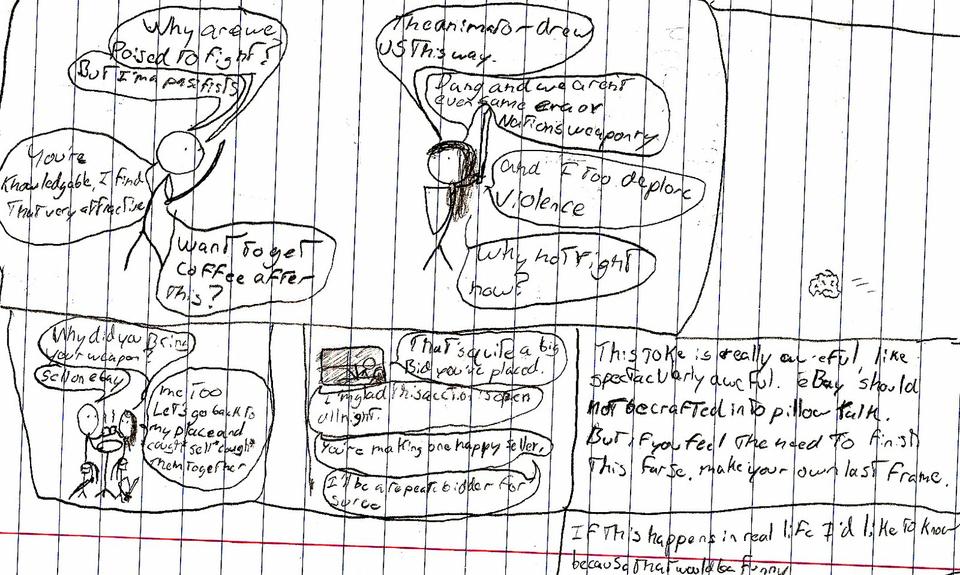 Why are we
Poised To Fight?
But I'm a pasifists
The animator drew
us This way.
Dang and we arent
even same era or
Nation's weaponry
You're
Knowledgable, I find
That very attractive
and I Too deplore
Violence
Want To get
coffee after
This?
Why not right
now?
Why did you Bring
your weapon?
Sell on ebay
me Too
Let's go back to
my place and
cough* sell *cough*
them Together
That's quite a big
Bid you've placed.
I'm glad this auction is open
all night.
You're making one happy seller.
I'll be a repeat bidder for
suree
This Joke is really aw eful, like
spectacularly awcful. eBay should
not be crafted into pillow talk.
But if you feel The need To finish
This farse. make your own last frame.
If This happens in real life I'd like To know
because That would be funny